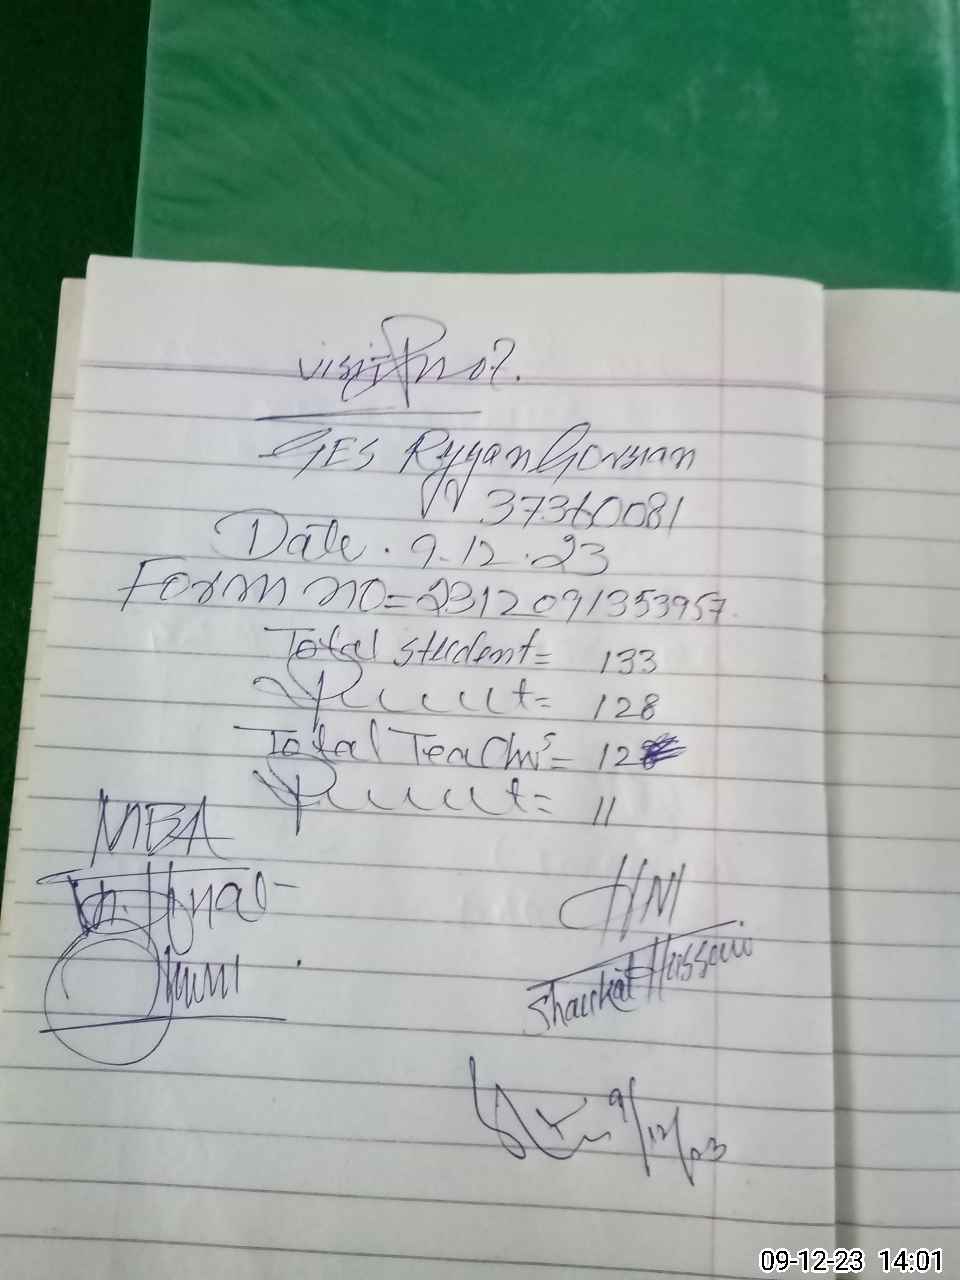 visit no 7.
GES Ryyan Gorsian
37360081
Date. 9-12.23
Form no = 2312091353957
Total student = 133
Present = 128
Total Teachers = 12
Present = 11
MBA
HM
Shaukat Hussain
9/12/23
09-12-23 14:01